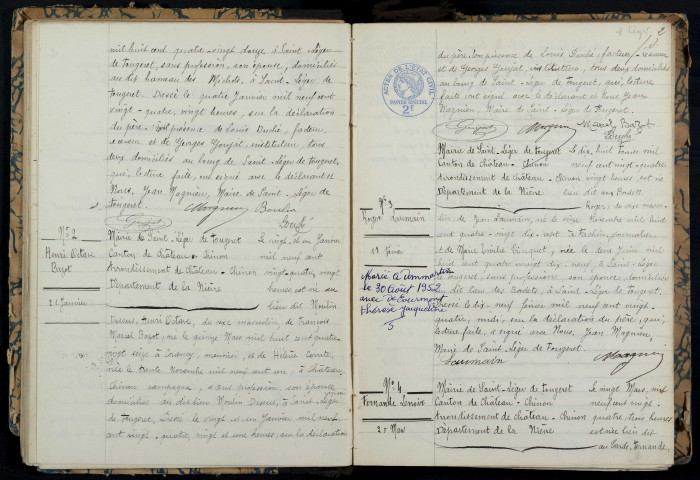 mil huit cent quatre-vingt douze à Saint-Léger
de Fougeret, sans profession, son épouse, domiciliés
au dit hameau des Michots, à Saint-Léger de
Fougeret. Dressé le quatre Janvier mil neuf cent
vingt-quatre, vingt heures, sur la déclaration
du père. En présence de Louis Duché, facteur
et de Georges Goujat, instituteur, tous
deux domiciliés au bourg de Saint-Léger de Fougeret,
qui, lecture faite, ont signé avec le déclarant et
Nous, Jean Magnien, Maire de Saint-Léger de
Fougeret.
Goujat Magnien Boulin
Duché
N° 2
Henri Octave
Bazot
21 Janvier
Mairie de Saint-Léger de Fougeret
Canton de Château-Chinon
Arrondissement de Château-Chinon
Département de la Nièvre
Le vingt et un Janvier
mil neuf cent
vingt-quatre, vingt
heures, est né au
lieu dit Moulin
Dessous, Henri Octave, du sexe masculin, de François
Marcel Bazot, né le quinze Mars mil huit cent quatre-
vingt seize à Corancy, meunier, et de Hélène Comte,
née le trente Novembre mil neuf cent un, à Château-
Chinon campagne, sans profession, son épouse
domiciliés au dit lieu Moulin Dessous, à Saint-Léger
de Fougeret. Dressé le vingt et un Janvier mil neuf
cent vingt-quatre, vingt et une heures, sur la déclaration
2
du père. En présence de Louis Duché, facteur
et de Georges Goujat, instituteur, tous deux domiciliés
au bourg de Saint-Léger de Fougeret, qui, lecture
faite, ont signé avec le déclarant et nous Jean
Magnien, Maire de Saint-Léger de Fougeret.
ACTES DE L'ETAT CIVIL
PAPIER SPECIAL
2F
Goujat Magnien Marcel Bazot
Duché
N° 3
Roger Laumain
Mairie de Saint-Léger de Fougeret
Canton de Château-Chinon
Arrondissement de Château-Chinon
Département de la Nièvre
Le dix-huit Février mil
neuf cent vingt-quatre
heures, est né
lieu dit les Badets
Roger, du sexe mascu-
lin, de Jean Laumain, né le seize Novembre mil huit
cent quatre-vingt-dix-sept à Fâchin, journalier
et de Marie
mil huit cent quatre-vingt dix-neuf
sans profession, son épouse, domiciliés
au dit lieu des Badets, à Saint-Léger de Fougeret.
Dressé le dix-neuf Février mil neuf cent vingt-
quatre, midi, sur la déclaration du père, qui,
lecture faite, a signé avec Nous, Jean Magnien,
Maire de Saint-Léger de Fougeret.
Laumain Magnien
Marié à
le 30 Août 1952
avec
Thérèse Jacqueline
5
N° 4
Fernande Lenoire
25 Mars
Mairie de Saint-Léger de Fougeret
Canton de Château-Chinon
Arrondissement de Château-Chinon
Département de la Nièvre
Le vingt Mars, mil
neuf cent vingt-
quatre, trois heures
est née lieu dit
Fernande,